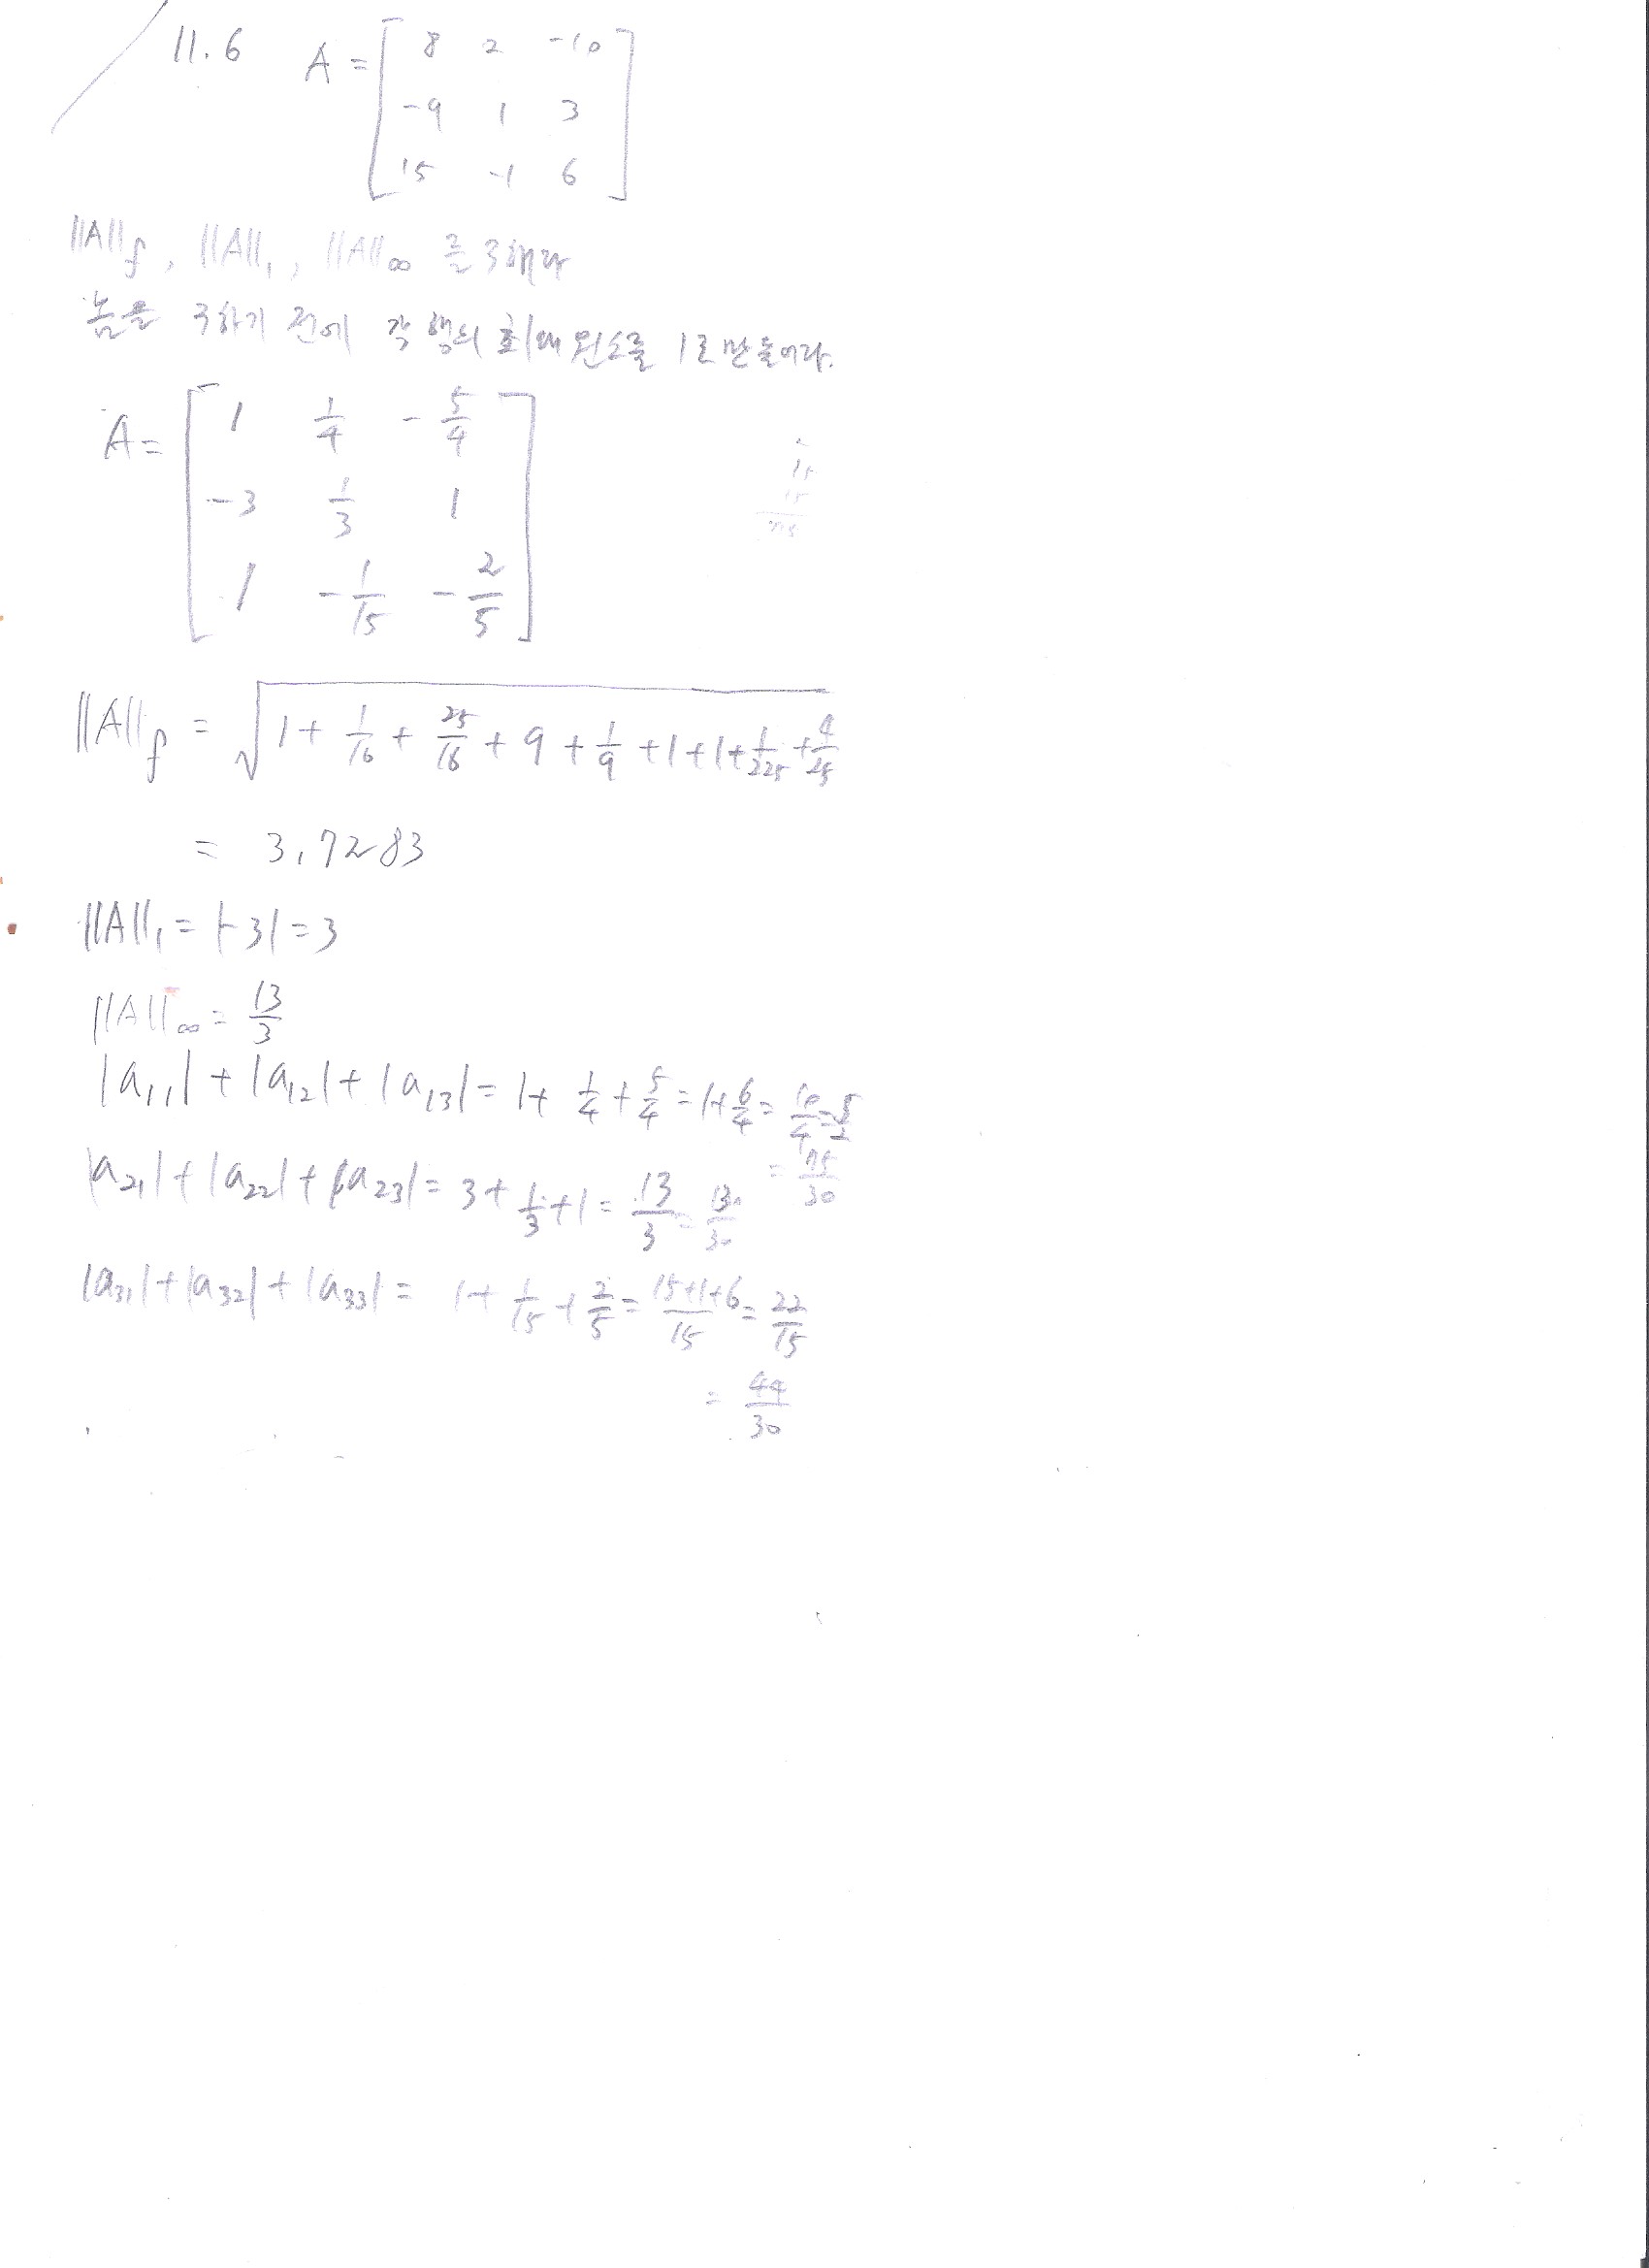 11.6 A = [ 8 2 -10
-9 1 3
15 -1 6 ]
||A||f, ||A||1, ||A||∞ 를 구해라
놈을 구하기 전에 각 행의 최대 원소를 1로 만들어라.
A = [ 1 1/4 -5/4
-3 1/3 1
1 -1/15 -2/5 ]
15
15
||A||f = √(1 + 1/16 + 25/16 + 9 + 1/9 + 1 + 1 + 1/225 + 4/25)
= 3.7283
||A||1 = |-3| = 3
||A||∞ = 13/3
|a11| + |a12| + |a13| = 1 + 1/4 + 5/4 = 1 + 6/4 = 10/4 = 5/2
= 75/30
|a21| + |a22| + |a23| = 3 + 1/3 + 1 = 13/3 = 130/30
|a31| + |a32| + |a33| = 1 + 1/15 + 2/5 = 15+1+6/15 = 22/15
= 44/30